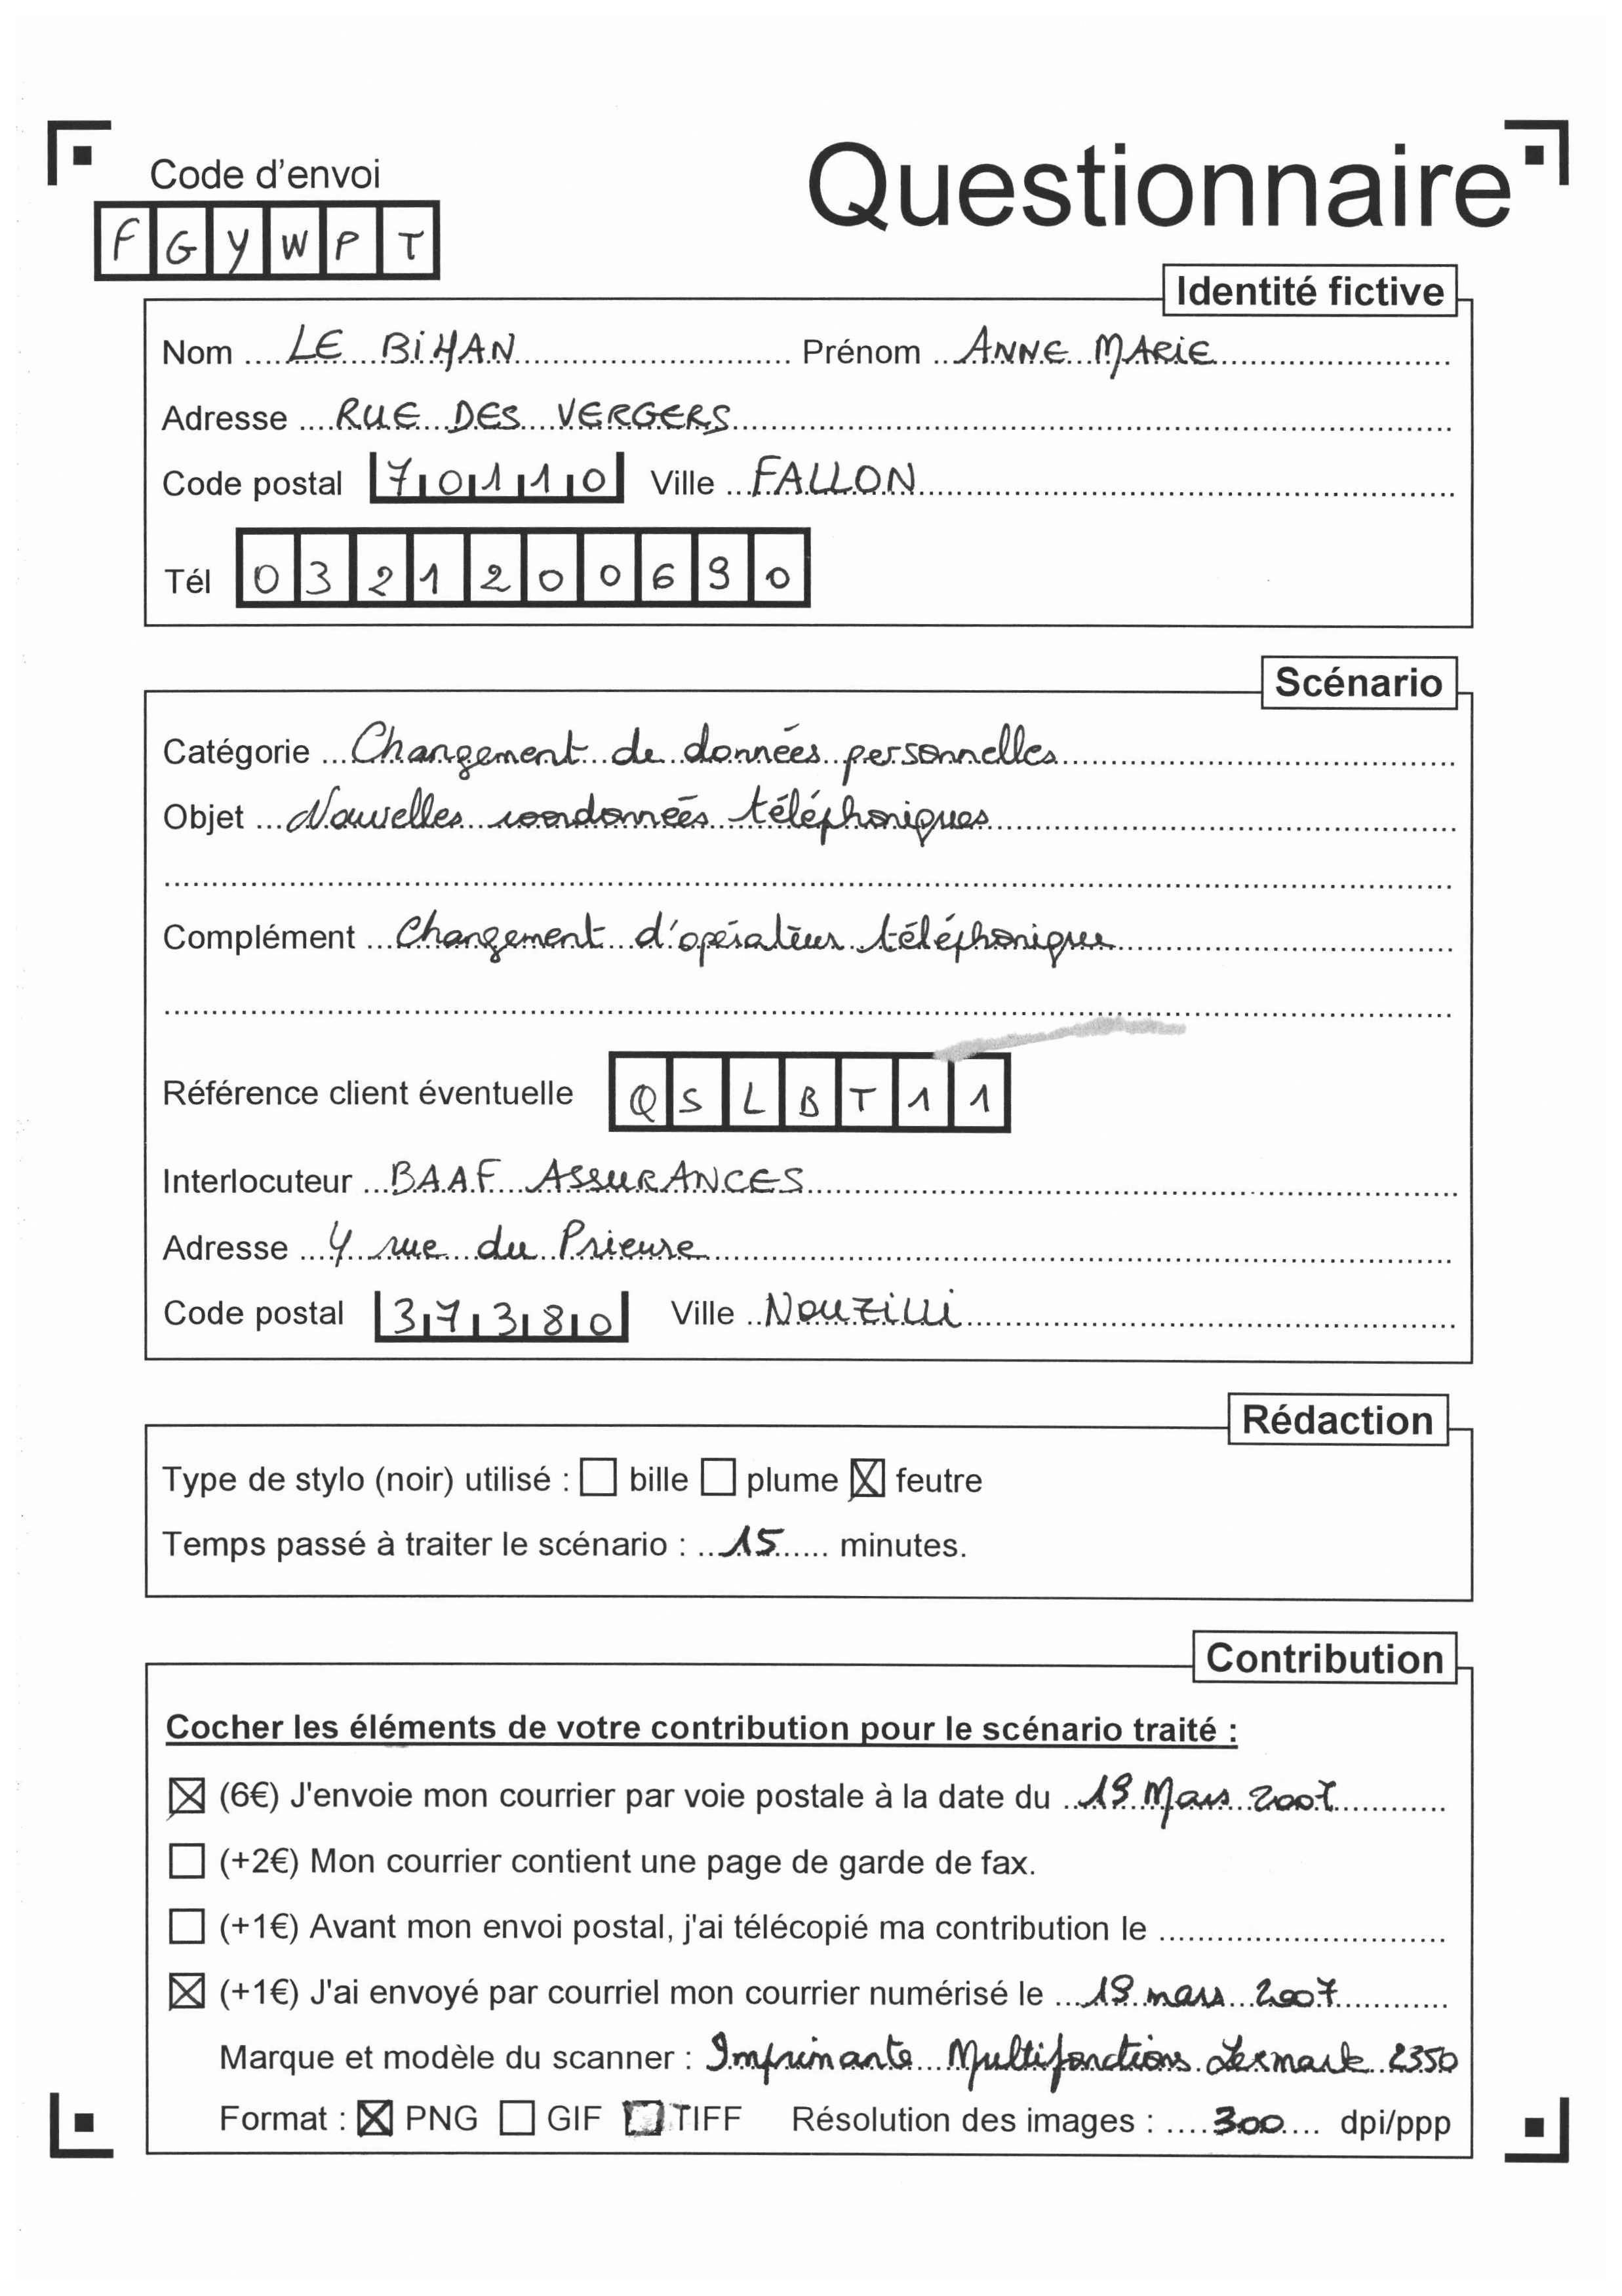 Code d'envoi
Questionnaire
F G Y W P T
Identité fictive
Nom LE BIHAN Prénom ANNE MARIE
Adresse RUE DES VERGERS
Code postal 70110 Ville FALLON
Tél 0321200690
Scénario
Catégorie Changement de données personnelles
Objet Nouvelles coordonnées téléphoniques
Complément Changement d'opérateur téléphonique
Référence client éventuelle QSLBT11
Interlocuteur BAAF ASSURANCES
Adresse 4 rue du Prieure
Code postal 37380 Ville Nouzilli
Rédaction
Type de stylo (noir) utilisé : ☐ bille ☐ plume ☒ feutre
Temps passé à traiter le scénario : 15 minutes.
Contribution
Cocher les éléments de votre contribution pour le scénario traité :
☒ (6€) J'envoie mon courrier par voie postale à la date du 19 Mars 2007
☐ (+2€) Mon courrier contient une page de garde de fax.
☐ (+1€) Avant mon envoi postal, j'ai télécopié ma contribution le
☒ (+1€) J'ai envoyé par courriel mon courrier numérisé le 19 mars 2007
Marque et modèle du scanner : Imprimante Multifonctions Lexmark 2350
Format : ☒ PNG ☐ GIF ☐ TIFF Résolution des images : 300 dpi/ppp